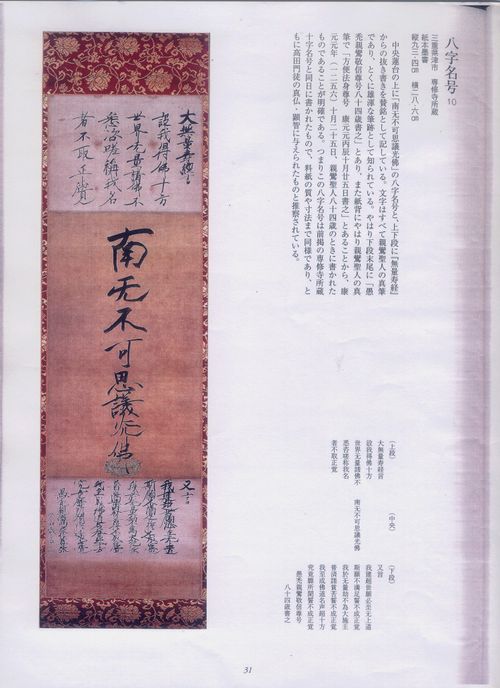 八字名号 10
三重県津市 専修寺所蔵
紙本墨書
縦九三・四㎝ 横二八・六㎝
中央蓮台の上に「南无不可思議光佛」の八字名号と、上下段に『無量寿経』
からの抜き書きを賛銘として記している。文字はすべて親鸞聖人の真筆
であり、とくに雄渾な筆跡として知られている。やはり下段末尾に「愚
禿親鸞敬信尊号八十四歳書之」とあり、また紙背にやはり親鸞聖人の真
筆で「方便法身尊号 康元元丙辰十月廿五日書之」とあることから、康
元元年（一二五六）十月二十五日、親鸞聖人八十四歳のときに書かれた
ものであることが明確である。つまりこの八字名号は前掲の専修寺所蔵
十字名号と同日に書かれたもので、料紙の質や寸法まで同様であり、と
もに高田門徒の真仏・顕智に与えられたものと推察されている。
（上段）
大無量寿経言
設我得佛十方
世界无量諸佛不
悉咨嗟称我名
者不取正覚
（中央）
南无不可思議光佛
（下段）
又言
我建超世願必至无上道
斯願不満足誓不成正覚
我於无量劫不為大施主
普済諸貧苦誓不成正覚
我至成佛道名声超十方
究竟靡所聞誓不成正覚
愚禿親鸞敬信尊号
八十四歳書之
大無量壽經言
設我得佛十方
世界无量諸佛不
悉咨嗟稱我名
者不取正覺
南无不可思議光佛
又言
31